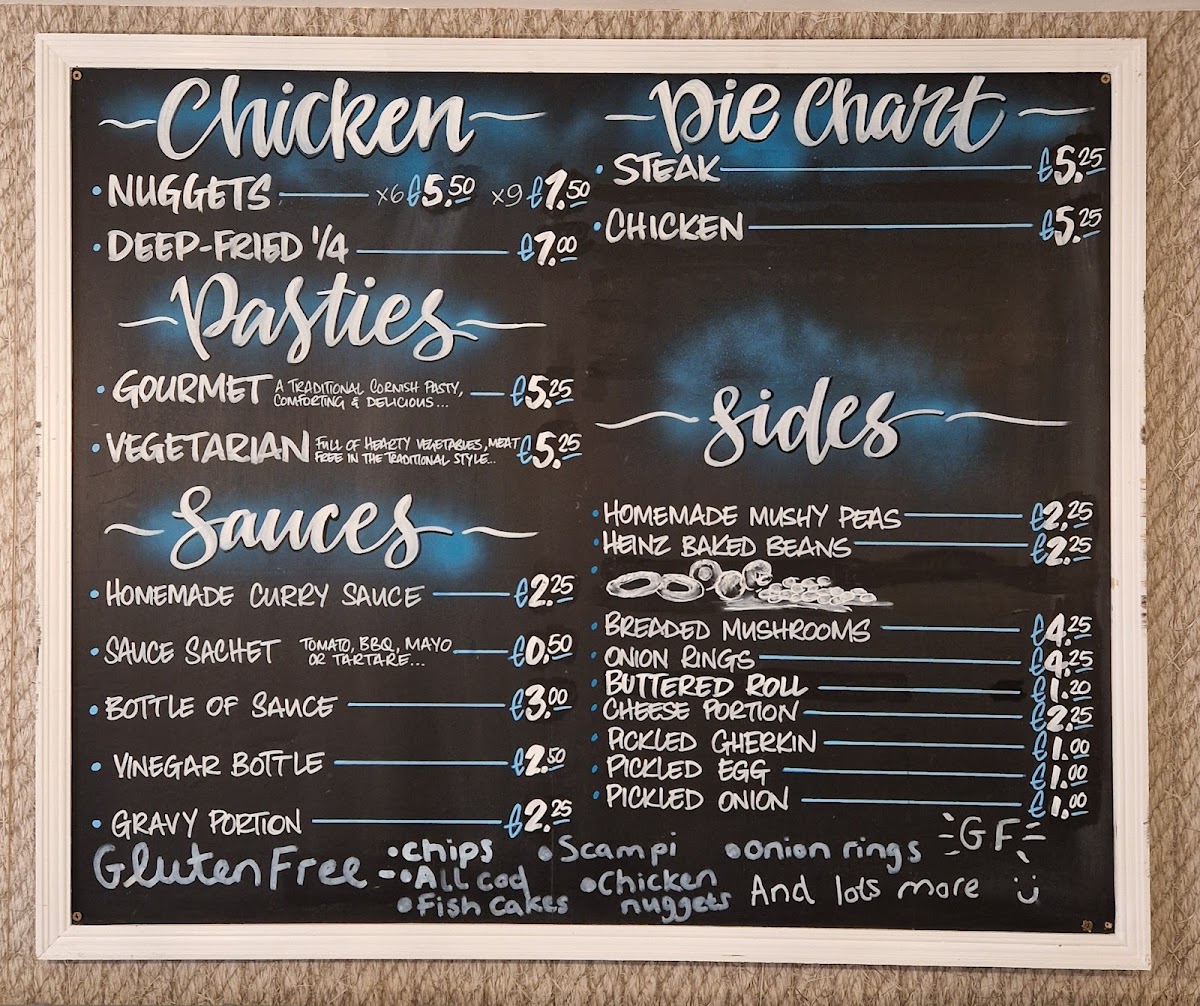 Chicken
• NUGGETS x6 £5.50 x9 £7.50
• DEEP-FRIED 1/4 £7.00
Pasties
• GOURMET A TRADITIONAL CORNISH PASTY, £5.25
COMFORTING & DELICIOUS...
• VEGETARIAN FULL OF HEARTY VEGETABLES, MEAT £5.25
FREE IN THE TRADITIONAL STYLE...
Sauces
• HOMEMADE CURRY SAUCE £2.25
• SAUCE SACHET TOMATO, BBQ, MAYO £0.50
OR TARTARE...
• BOTTLE OF SAUCE £3.00
• VINEGAR BOTTLE £2.50
• GRAVY PORTION £2.25
Pie Chart
• STEAK £5.25
• CHICKEN £5.25
Sides
• HOMEMADE MUSHY PEAS £2.25
• HEINZ BAKED BEANS £2.25
• BREADED MUSHROOMS £4.25
• ONION RINGS £4.25
• BUTTERED ROLL £1.20
• CHEESE PORTION £2.25
• PICKLED GHERKIN £1.00
• PICKLED EGG £1.00
• PICKLED ONION £1.00
GF
Gluten Free - • chips • Scampi • Onion rings
• All cod • Chicken And lots more :)
• Fish cakes nuggets